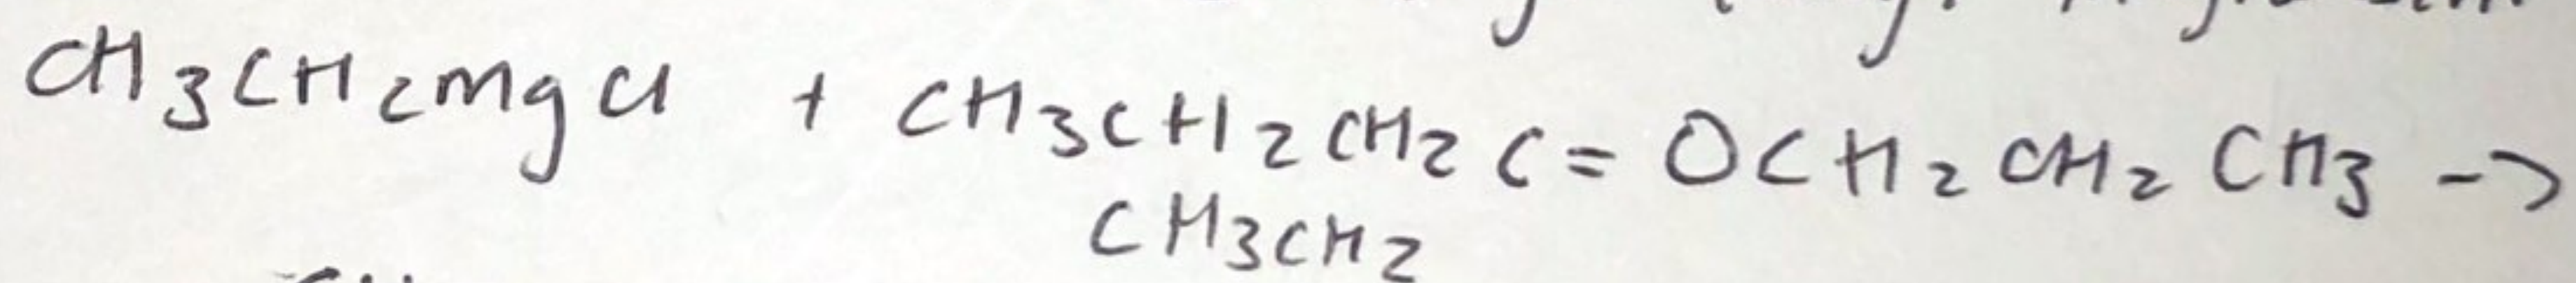 CH3CH2MgCl + CH3CH2CH2C=OCH2CH2CH3 ->
CH3CH2